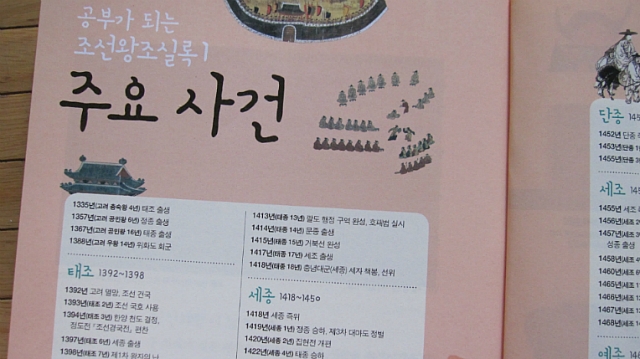 공부가 되는
조선왕조실록 1
주요 사건
1335년(고려 충숙왕 4년) 태조 출생
1357년(고려 공민왕 6년) 정종 출생
1367년(고려 공민왕 16년) 태종 출생
1388년(고려 우왕 14년) 위화도 회군
태조 1392~1398
1392년 고려 멸망, 조선 건국
1393년(태조 2년) 조선 국호 사용
1394년(태조 3년) 한양 천도 결정,
정도전 『조선경국전』 편찬
1397년(태조 6년) 세종 출생
1398년(태조 7년) 제1차 왕자의 난
1413년(태종 13년) 팔도 행정 구역 완성, 호패법 실시
1414년(태종 14년) 문종 출생
1415년(태종 15년) 거북선 완성
1417년(태종 17년) 세조 출생
1418년(태종 18년) 충녕대군(세종) 세자 책봉, 선위
세종 1418~1450
1418년 세종 즉위
1419년(세종 1년) 정종 승하, 제3차 대마도 정벌
1420년(세종 2년) 집현전 개편
1422년(세종 4년) 태종 승하
단종 145
1452년 단종
1453년(단종
1455년(단종
세조 145
1455년 세조
1456년(세조
1457년(세조
성종 출생
1458년(세조
1460년(세조
1465년(세조
1467년(세조
1468년(세조
예종